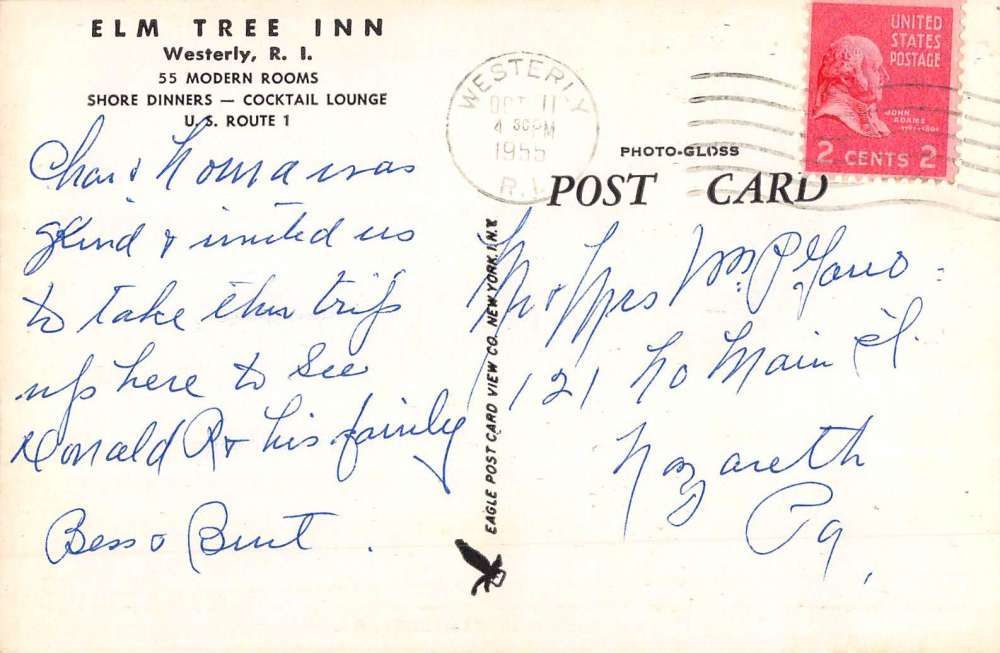 ELM TREE INN
Westerly, R. I.
55 MODERN ROOMS
SHORE DINNERS — COCKTAIL LOUNGE
U. S. ROUTE 1
Chas & Noma was
kind & invited us
to take this trip
up here to See
Donald R & his family
Bess &
WESTERLY
OCT 11
4 30 PM
1955
R. I.
UNITED
STATES
POSTAGE
JOHN
ADAMS
1797-1801
2 CENTS 2
PHOTO-GLOSS
POST CARD
EAGLE POST CARD VIEW CO. NEW YORK, 1, N.Y.
Mr & Mrs Wm. P.
121 No Main St.
Nazareth
Pa,